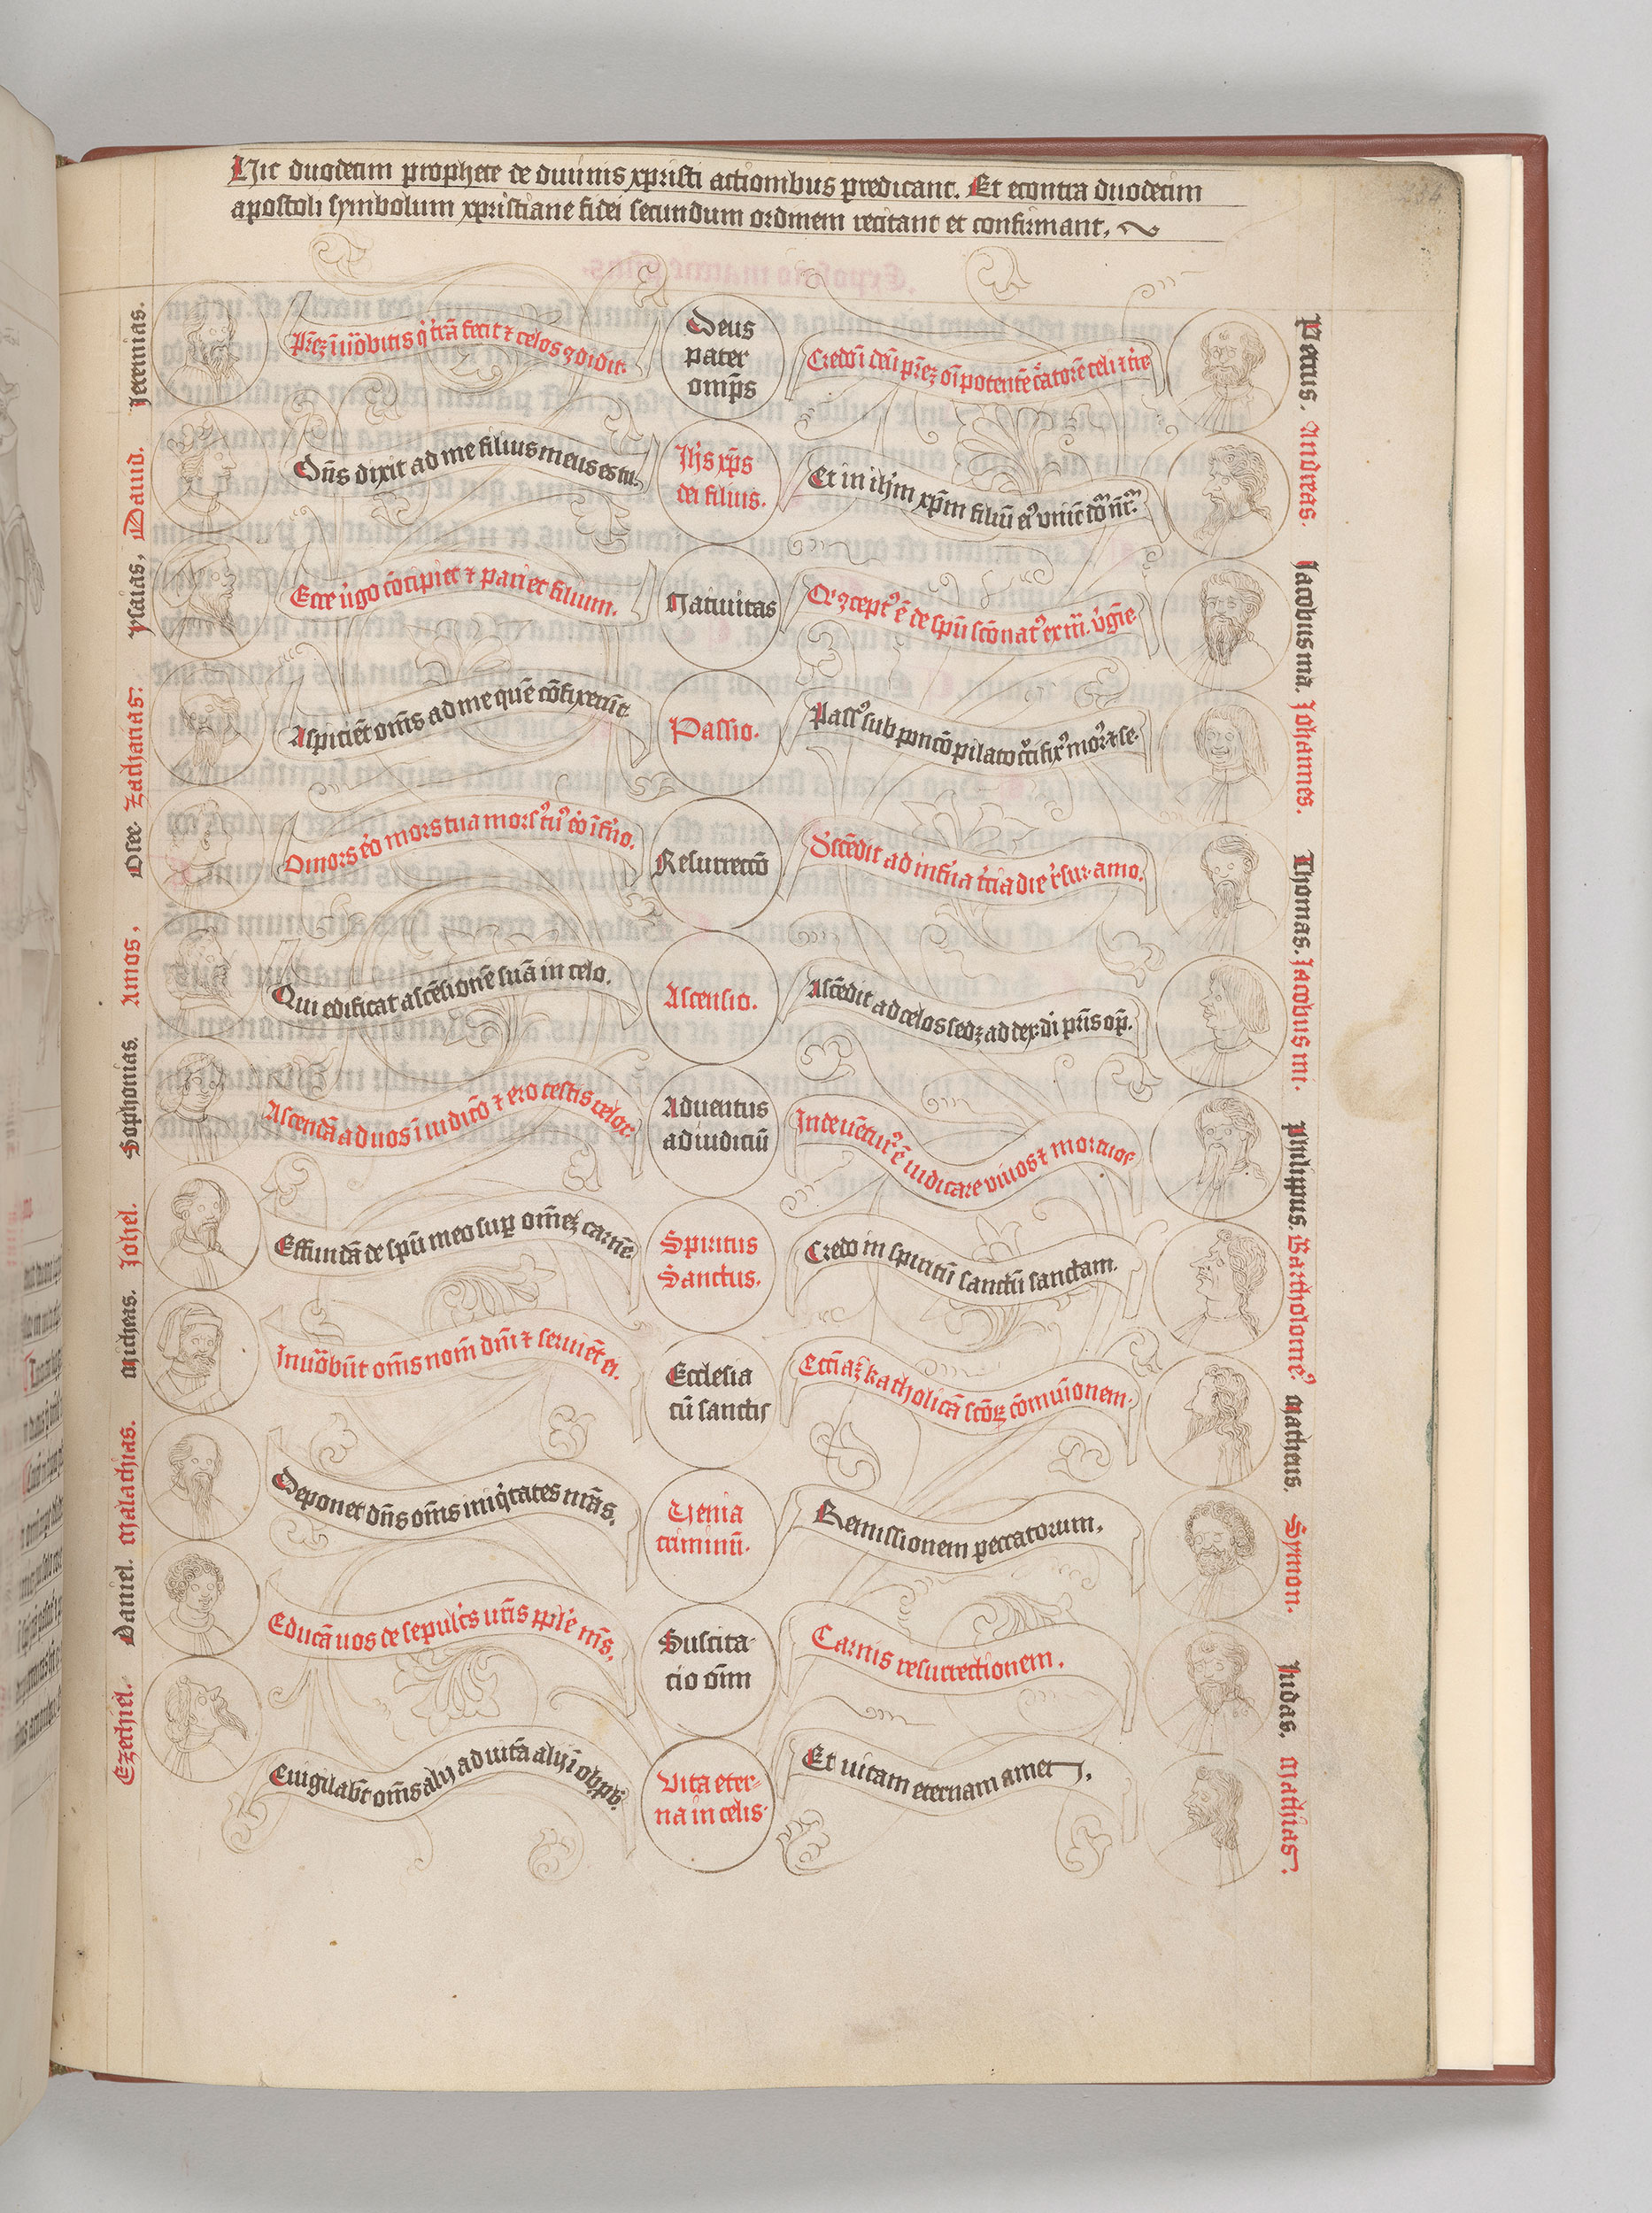 Hic duodecim prophete de diuinis xpristi actionibus predicant. Et econtra duodecim
apostoli symbolum xpristiane fidei secundum ordinem recitant et confirmant.
Jeremias.
Prēz īuōbitis q̇ trā fecit ⁊ celos ꝯdidit.
Deus
pater
omp̄s
Credo ī deū prēz oīpotentē c̄atorē celi ⁊ t̄re
Petrus.
Dauid.
Dn̄s dixit ad me filius meus es tu.
Jh̄s xp̄s
dei filius.
Et in ih̄m xp̄m filiū eiꝰ vnicū
Andreas.
ysaias.
Ecce ũgo cōcipiet ⁊ pariet filium.
Natiuitas
Qi ꝯceptꝰ ē de spū scō natꝰ ex m̄. v̄gīe
Jacobus ma.
Zacharias.
Aspiciēt om̄s ad me quē cōfixerūt
Passio.
Passꝰ sub poncō pilato c̄cifixꝰ morꝰ ⁊ se.
Johannes.
Osee.
O mors ēo mors tua morsꝰ tuꝰ ēo īfn̄o.
Resurrectō
Dscēdit ad inf̄na t̄cia die r̄sur. a mo.
Thomas.
Amos.
Qui edificat ascēsionē suā in celo.
Ascensio.
Ascēdit ad celos sedz ad dex di pr̄is op̄.
Jacobus mi.
Sophonias.
Ascendā ad uos ī iudicō ⁊ ero testis celox.
Aduentus
ad iudiciū
Inde uēturꝰ ē iudicare viuos ⁊ mortuos
Philippus.
Johel.
Effundā de spū meo suꝑ om̄ez carnē.
Spiritus
Sanctus.
Credo in spiritū sanctū sanctam.
Bartholomeꝰ.
Micheas.
Inuōbūt om̄s nom̄ dn̄i ⁊ seruiēt ei.
Ecclesia
cū sanctis
Eccīaz katholicā scōꝝ cōmuīonem.
Matheus.
Malachias.
Deponet dn̄s om̄s iniq̇tates nr̄as.
Uenia
criminū.
Remissionem peccatorum.
Symon.
Daniel.
Educā uos de sepulcs ur̄is pple m̄s.
Suscita-
tio om̄n
Carnis resurrectionem.
Judas.
Ezechiel.
Euigilabūt om̄s alij ad uitā alij ī obpb.
Vita eter-
na in celis.
Et uitam eternam amen.
Mathias.